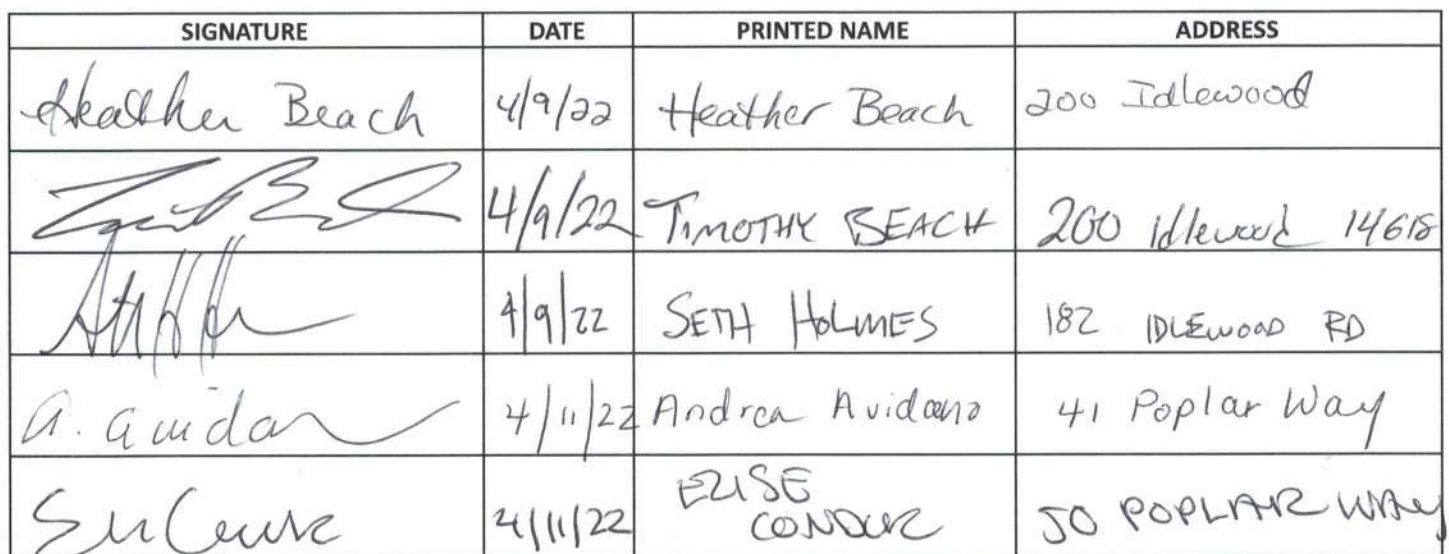 SIGNATURE DATE PRINTED NAME ADDRESS
Heather Beach 4/9/22 Heather Beach 200 Idlewood
4/9/22 TIMOTHY BEACH 200 Idlewood 14618
4/9/22 SETH HOLMES 182 IDLEWOOD RD
4/11/22 Andrea Avidano 41 Poplar Way
4/11/22 ELISE 50 POPLAR WAY